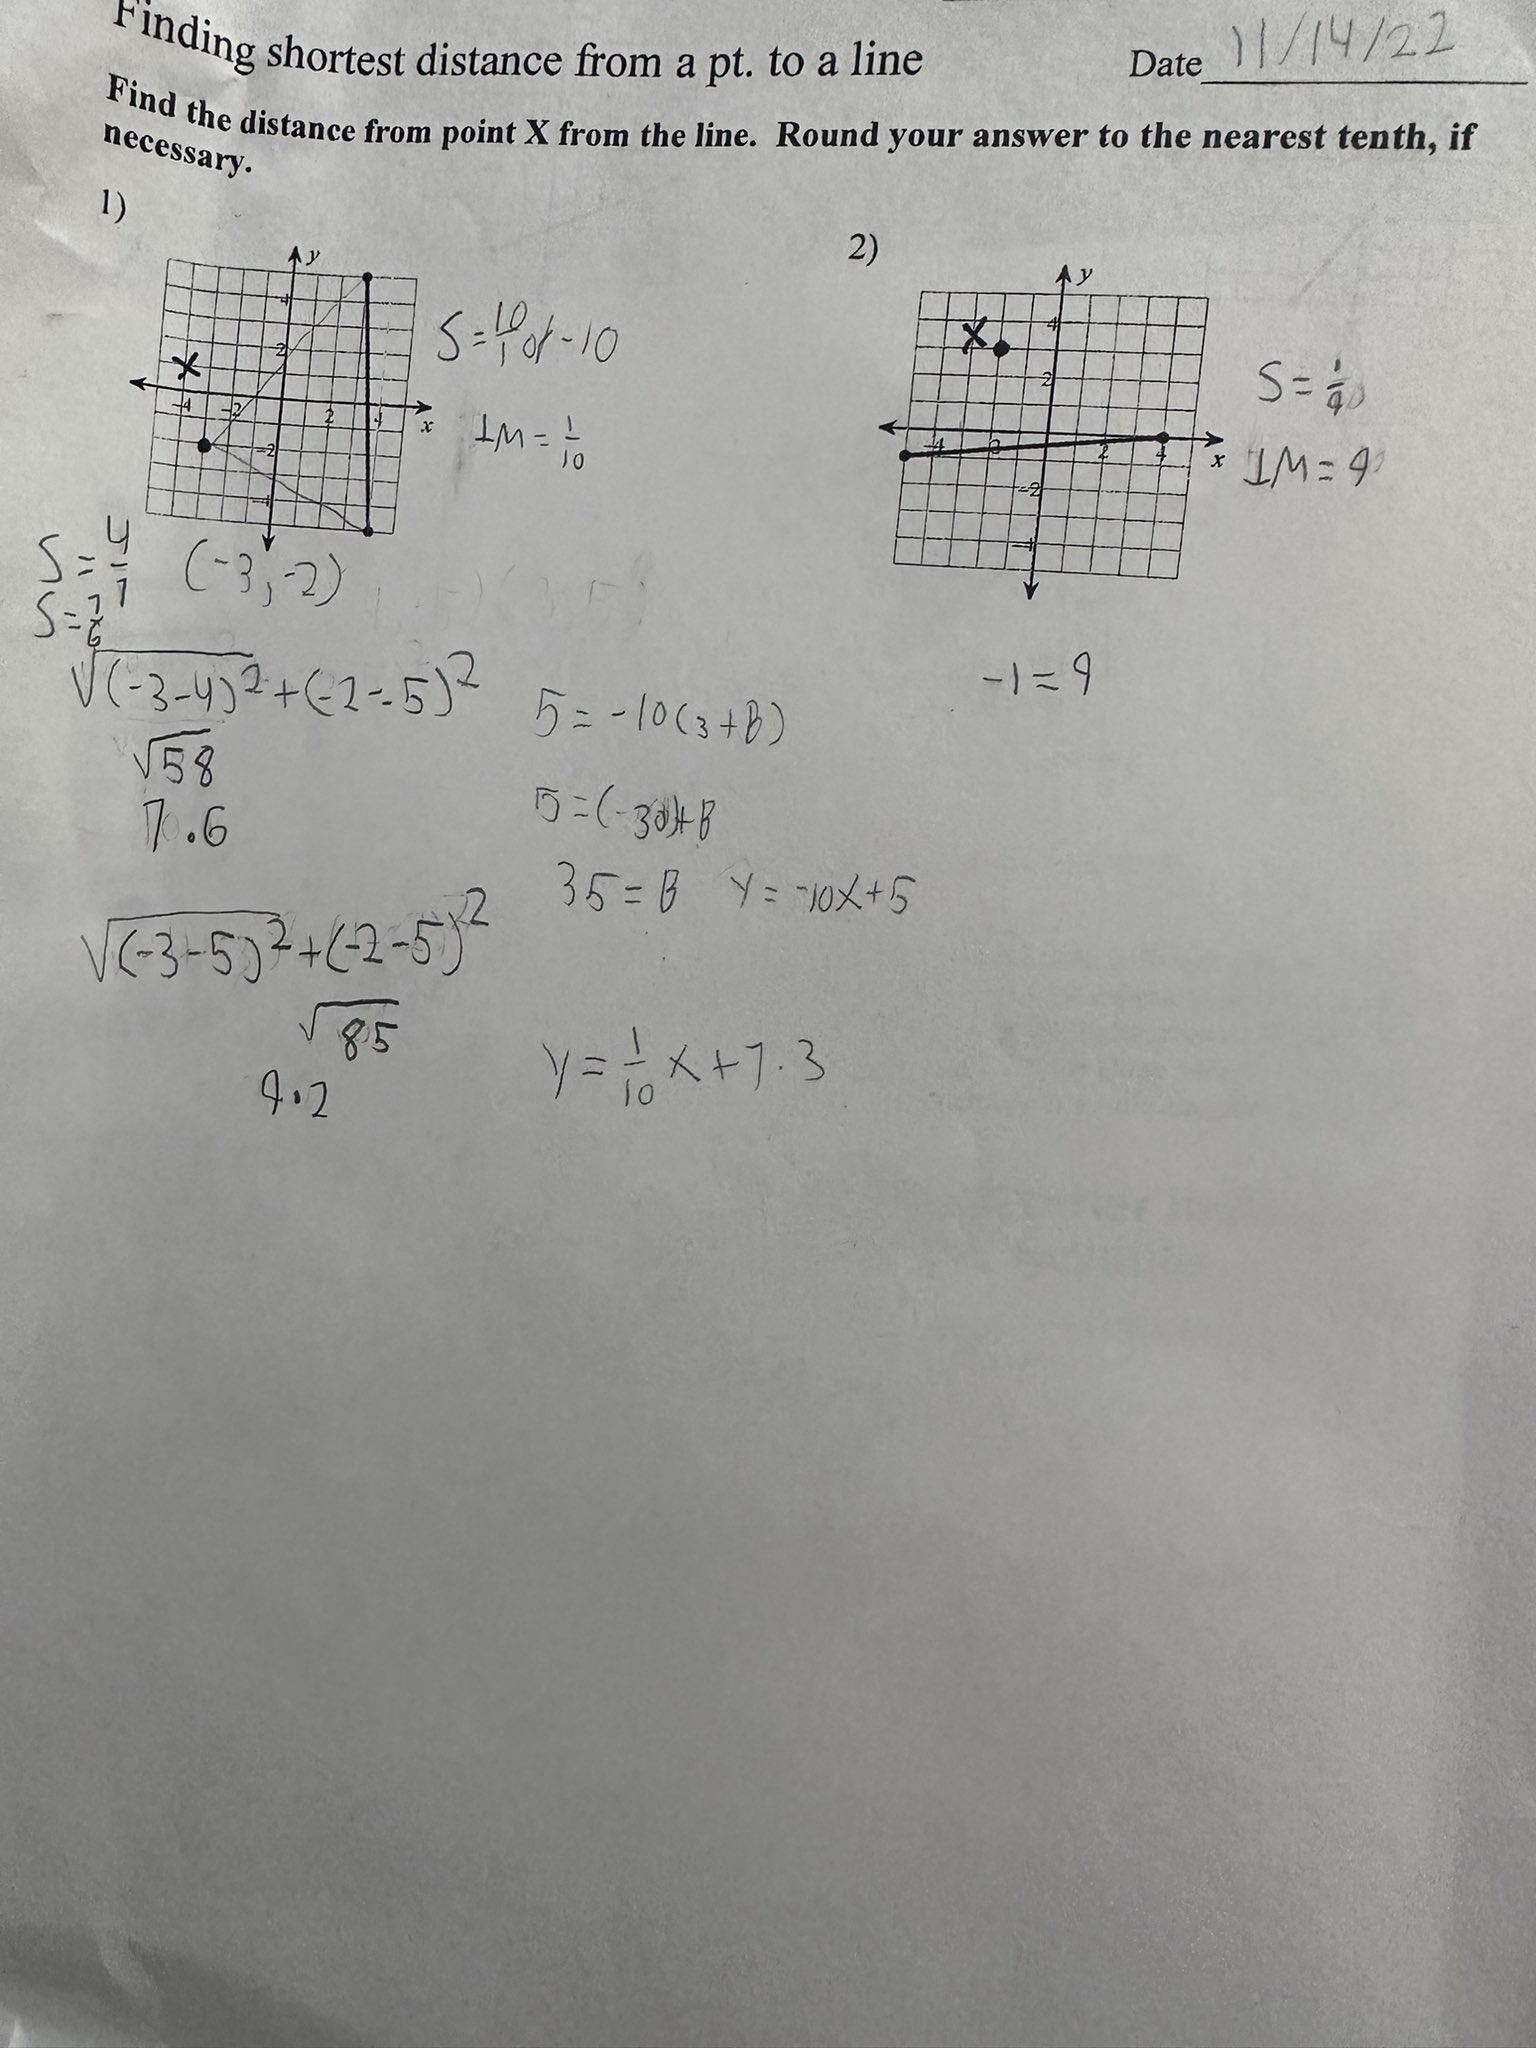 Finding shortest distance from a pt. to a line
Date 11/14/22
Find the distance from point X from the line. Round your answer to the nearest tenth, if
necessary.
1)
y
4
2
X
-4
-2
2
4
x
-2
-4
S = 10/1 -10
⊥M = 1/10
S = 4/7
(-3, -2)
S = 7/6
√(-3-4)² + (-2--5)²
√58
7.6
√(-3-5)² + (-2-5)²
√85
9.2
5 = -10(3+B)
5 = (-30)+B
35 = B y = -10x+5
y = 1/10 x + 7.3
2)
y
4
X
2
-4
2
4
x
-2
-4
S = 1/9
⊥M = 9
-1 = 9